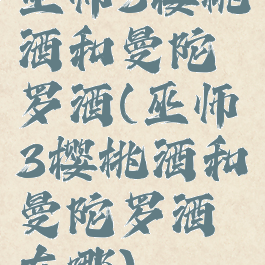 巫师3樱桃
酒和曼陀
罗酒(巫师
3樱桃酒和
曼陀罗酒
在哪)